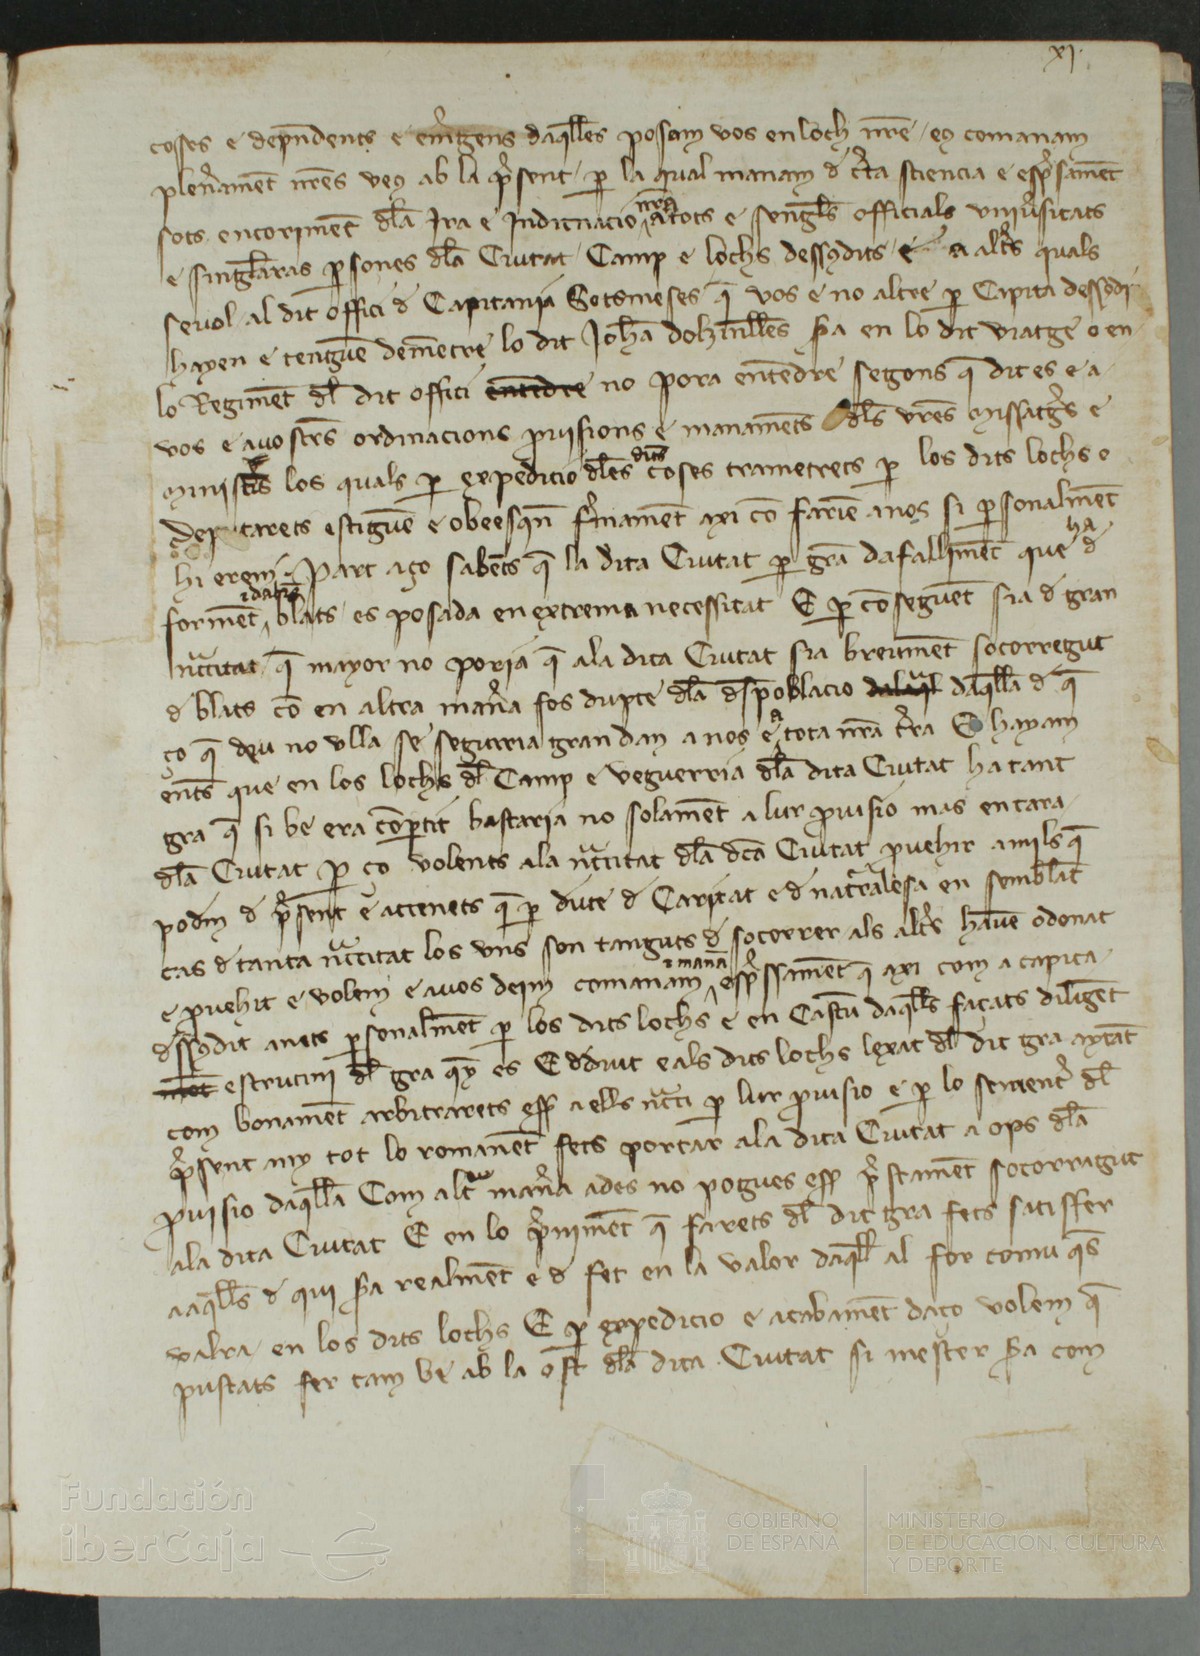 xj.
coses e depn̄dents e em̄gens daq̄lles posam vos en loch nr̄e eus comanam
plen̄ament nr̄es veus ab la p̄sent per la qual manam d' c̄ta sciencia e exp̄sament
sots encorimēt dl̄a Ira e Indignacio nr̄a a tots e sengl̄s officials vniūsitats
e singl̄aras persones dl̄a Ciutat Camp e lochs dessusdits e a altr̄s quals
seuol al dit offici d' Capitania Sotsmeses q̄ vos e no altre per Capita dessusdi
hayen e tenguē demētre lo dit Joh̄a dolzinell̄es sia en lo dit viatge o en
lo Regimēt dl̄ dit offici entēdre no pora entēdre segons q̄ dit es e a
vos e a vostr̄s ordinacions ꝓuisions e manamēts dl̄s vr̄es missatḡs e
ministr̄s los quals per expedicio dl̄es dites coses trametrets per los dits lochs e
deputarets estiguē e obeesquē f̄mament axi cō fariē a nos si personalmēt
hi erem Part aço sabēts q̄ la dita Ciutat per grā dafallimēt que ha d'
formēt e daltr̄s blats es posada en extrema necessitat E per cōseguēt sia d' gran
nēcitat q̄ mayor no poria q̄ ala dita Ciutat sia breumēt socorregut
d' blats cō en altra man̄a fos dupte dl̄a despoblacio dalaql̄ daq̄lla d' q̄
ço q̄ deu no vlla se seguiria gran dan a nos e a tota nr̄a t̄ra E hayam
entēs que en los lochs dl̄ Camp e vegueria dl̄a dita Ciutat ha tant
gra q̄ si be era cōpartit bastaria no solamēt a lur ꝓuisio mas encara
dl̄a Ciutat per ço volents ala nēcitat dl̄a dc̄a Ciutat ꝓuehir a mils q̄
podem d' p̄sent e attenēts q̄ per deute d' Caritat e d' nat̄ralesa en semblāt
cas d' tanta nēcitat los vns son tenguts d' socorrer als altr̄s hauē ordonat
e ꝓuehit e volem e a vos deim comanam e manā exp̄ssamēt q̄ axi com a capita
dessusdit anets personalmēt per los dits lochs e en Cascū daq̄lls façats diligēt
escrutini dl̄ gra quey es E dduit e als dits lochs lexat dl̄ dit gra aytāt
com bonamēt arbitrarets ess̄ a ells nēcci per lur ꝓuisio e per lo semēter dl̄
p̄sent any tot lo romanēt fets portar ala dita Ciutat a ops dl̄a
ꝓuisio daq̄lla Com alt̄ man̄a ades no pogues ess̄ p̄stamēt socorregut
ala dita Ciutat E en lo p̄nimēt q̄ farets dl̄ dit gra fets satisfer
a aq̄lls d' qui sia realmēt e d' fet en la valor daq̄ll al for comu q̄s
valra en los dits lochs E per expedicio e acabamēt daço volem q̄
puscats fer tam be ab la ost dl̄a dita Ciutat si mester sia com
Fundación
iberCaja
GOBIERNO
DE ESPAÑA
MINISTERIO
DE EDUCACIÓN, CULTURA
Y DEPORTE